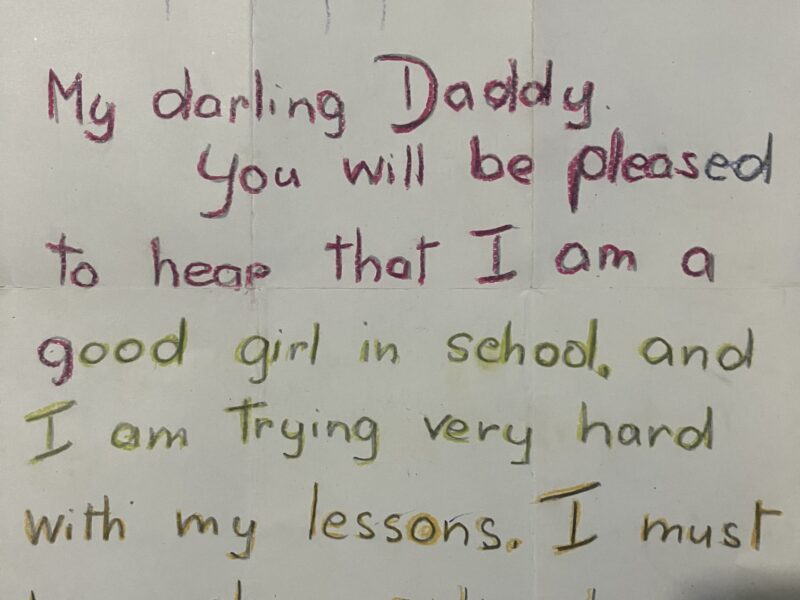 My darling Daddy.
You will be pleased
to hear that I am a
good girl in school, and
I am trying very hard
with my lessons. I must